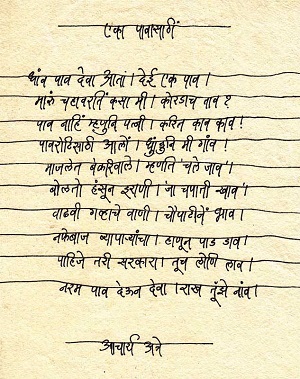 एका पावासाठीं
धांव पाव देवा आतां। देई एक पाव।
मारुं चहावरतिं कसा मी। कोरडाच ताव?
पाव नाहिं म्हणुनि पत्नी। करित काव काव!
पावरोटिसाठी आलों। धुंडुनि मी गांव!
माजलेत बेकरिवाले। म्हणति 'चले जाव'।
बोलतो हंसून इराणी। 'जा चपाती खाव'।
वाढवी गव्हाचे वाणी। चौपाटीनें भाव।
नफेबाज व्यापाऱ्यांचा। हाणून पाड डाव।
पाहिजे तरी सरकारा। तूच लोणि लाव।
नरम पाव देऊन देवा। राख तूंझे नांव।
आचार्य अत्रे